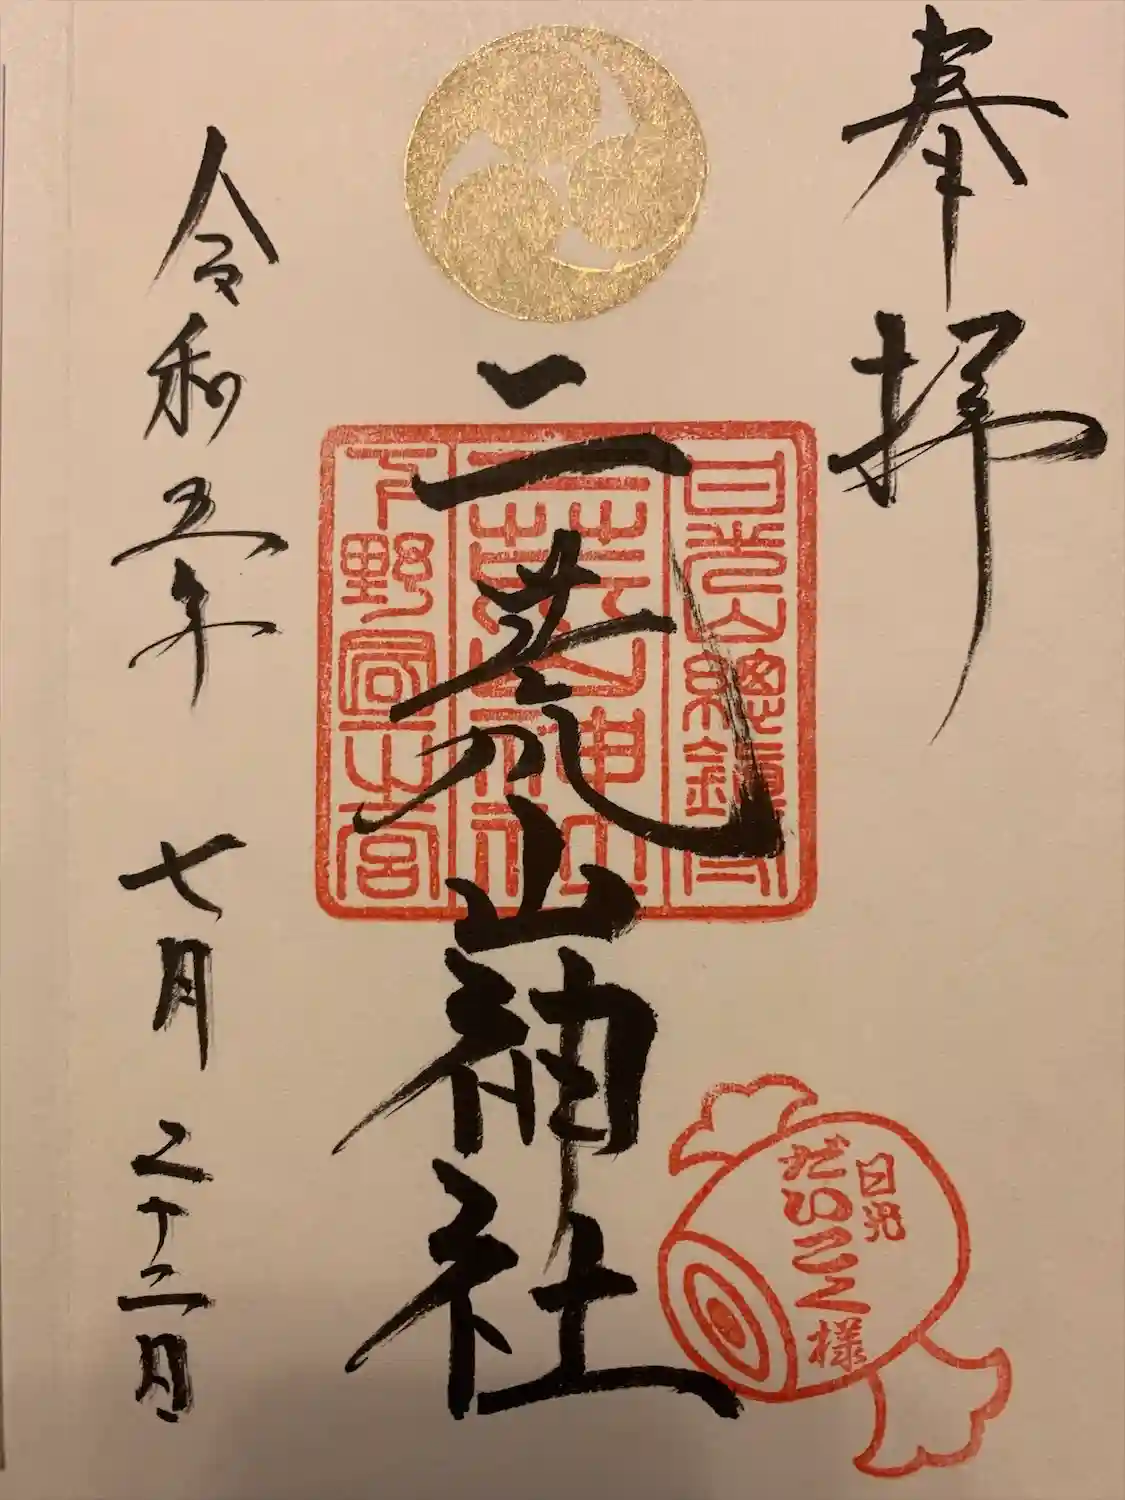 奉拝
日光山總鎮守
二荒山神社
下野國一宮
二荒山神社
日光
だいこく様
令和五年
七月二十二日